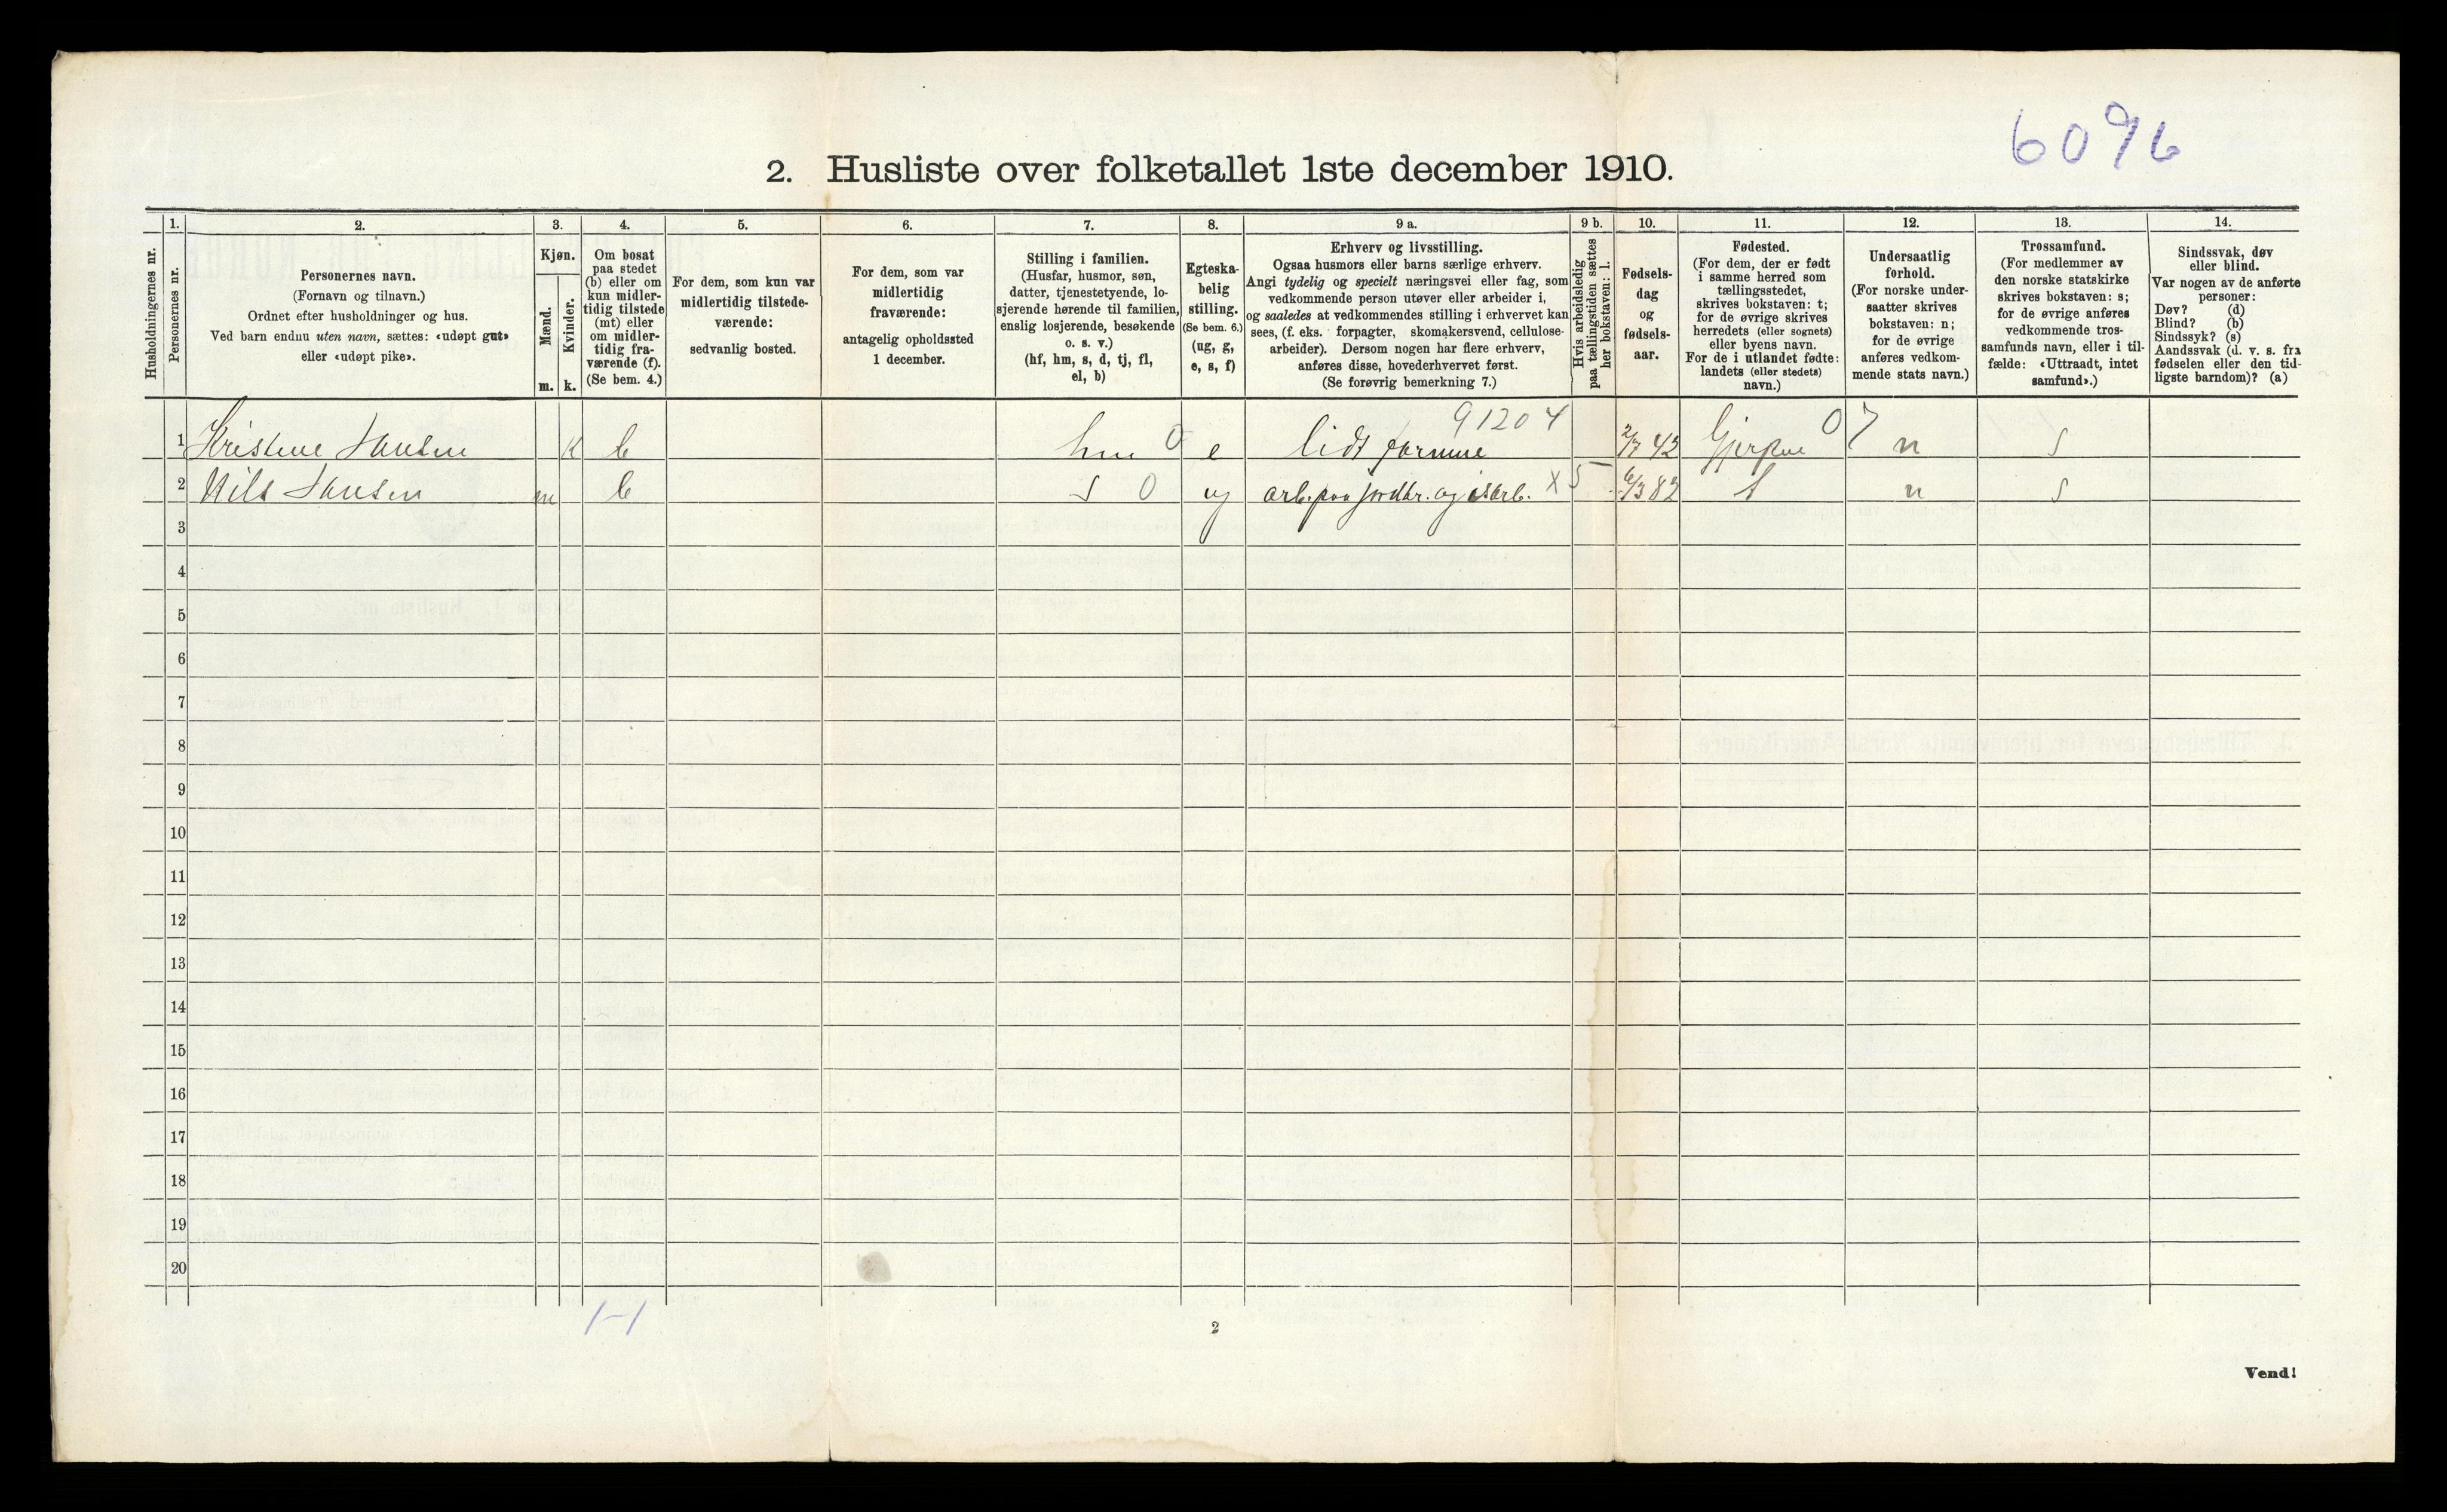 6096
2. Husliste over folketallet 1ste december 1910.
Husholdningernes nr.
1.
Personernes nr.
2.
Personernes navn.
(Fornavn og tilnavn.)
Ordnet efter husholdninger og hus.
Ved barn endnu uten navn, sættes: «udøpt gut»
eller «udøpt pike».
3.
Kjøn.
Mænd.
m.
Kvinder.
k.
4.
Om bosat
paa stedet
(b) eller om
kun midler-
tidig tilstede
(mt) eller
om midler-
tidig fra-
værende (f).
(Se bem. 4.)
5.
For dem, som kun var
midlertidig tilstede-
værende:
sedvanlig bosted.
6.
For dem, som var
midlertidig
fraværende:
antagelig opholdssted
1 december.
7.
Stilling i familien.
(Husfar, husmor, søn,
datter, tjenestetyende, lo-
sjerende hørende til familien,
enslig losjerende, besøkende
o. s. v.)
(hf, hm, s, d, tj, fl,
el, b)
8.
Egteska-
belig
stilling.
(Se bem. 6.)
(ug, g,
e, s, f)
9 a.
Erhverv og livsstilling.
Ogsaa husmors eller barns særlige erhverv.
Angi tydelig og specielt næringsvei eller fag, som
vedkommende person utøver eller arbeider i,
og saaledes at vedkommendes stilling i erhvervet kan
sees, (f. eks. forpagter, skomakersvend, cellulose-
arbeider). Dersom nogen har flere erhverv,
anføres disse, hovederhvervet først.
(Se forøvrig bemerkning 7.)
9 b.
Hvis arbeidsledig
paa tællingstiden sættes
her bokstaven: l.
10.
Fødsels-
dag
og
fødsels-
aar.
11.
Fødested.
(For dem, der er født
i samme herred som
tællingsstedet,
skrives bokstaven: t;
for de øvrige skrives
herredets (eller sognets)
eller byens navn.
For de i utlandet fødte:
landets (eller stedets)
navn.)
12.
Undersaatlig
forhold.
(For norske under-
saatter skrives
bokstaven: n;
for de øvrige
anføres vedkom-
mende stats navn.)
13.
Trossamfund.
(For medlemmer av
den norske statskirke
skrives bokstaven: s;
for de øvrige anføres
vedkommende tros-
samfunds navn, eller i til-
fælde: «Uttraadt, intet
samfund».)
14.
Sindssvak, døv
eller blind.
Var nogen av de anførte
personer:
Døv? (d)
Blind? (b)
Sindssyk? (s)
Aandssvak (d. v. s. fra
fødselen eller den tid-
ligste barndom)? (a)
91204
1 Kristine Hansen k b hm 0 e lidt formue 2/7 42 Gjerpen 07 n s
2 Nils Hansen m b s 0 ug arb. paa jordbr. og isarb. x5 6/3 82 t n s
3
4
5
6
7
8
9
10
11
12
13
14
15
16
17
18
19
20
1-1
2
Vend!